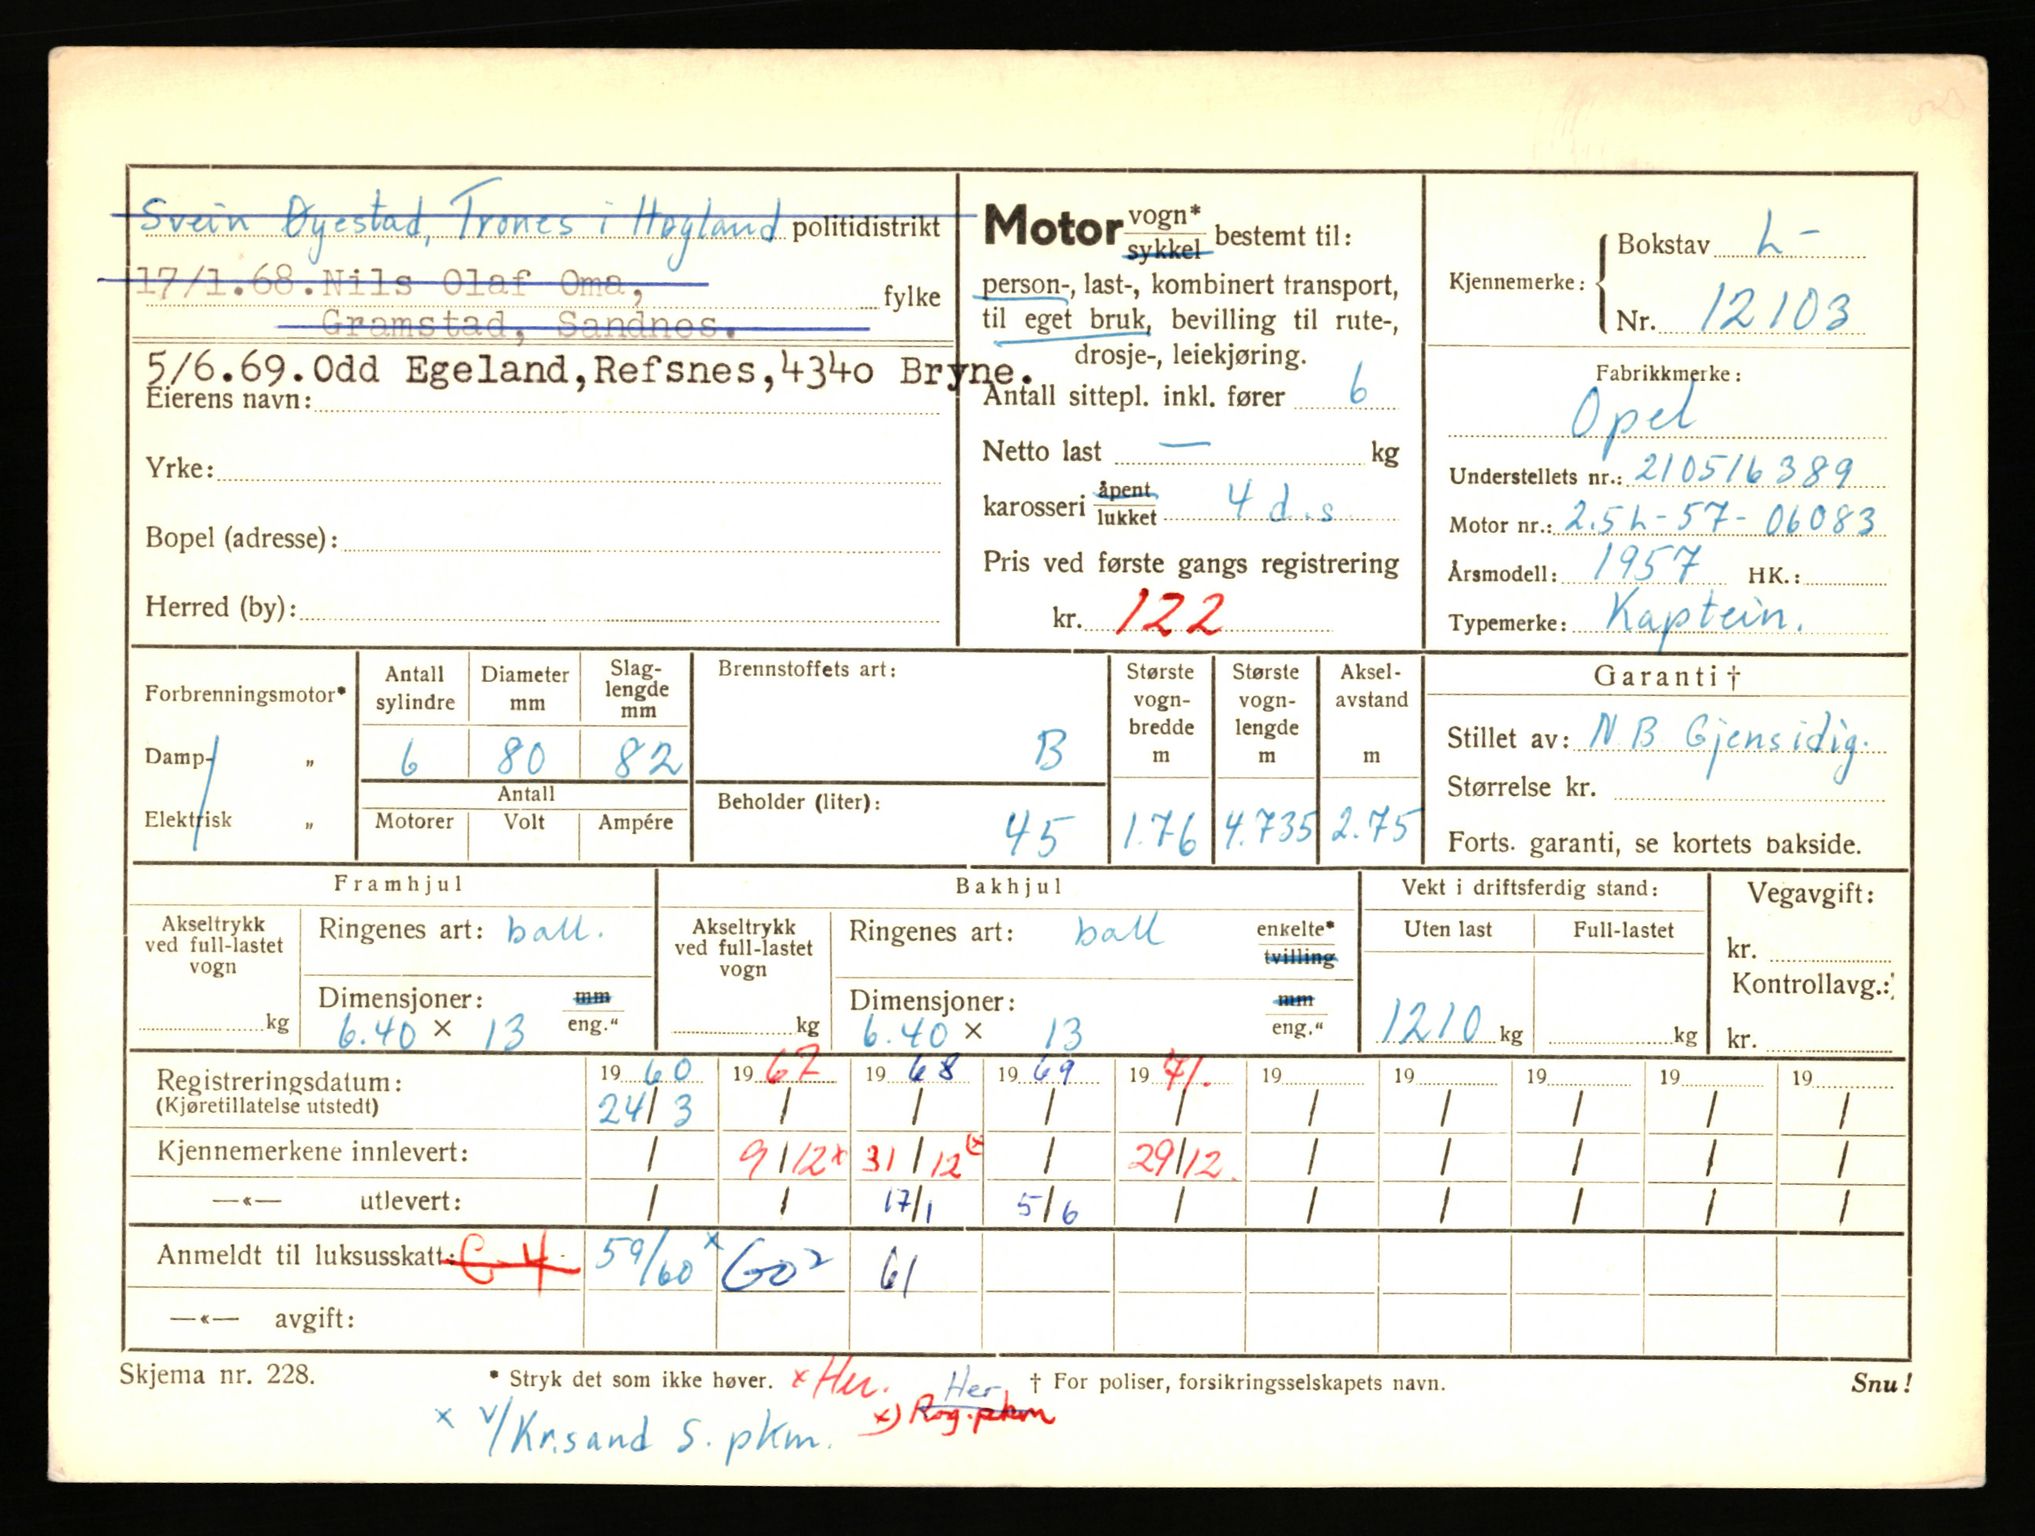 Svein Øyestad, Trones i Høyland politidistrikt
17/1.68. Nils Olaf Oma, fylke
Gramstad, Sandnes.
5/6.69. Odd Egeland, Refsnes, 4340 Bryne.
Eierens navn:
Yrke:
Bopel (adresse):
Herred (by):
Motor vogn* sykkel bestemt til:
person-, last-, kombinert transport,
til eget bruk, bevilling til rute-,
drosje-, leiekjøring.
Antall sittepl. inkl. fører 6
Netto last — kg
karosseri åpent lukket 4 d.s.
Pris ved første gangs registrering
kr. 122
Kjennemerke: Bokstav L-
Nr. 12103
Fabrikkmerke:
Opel
Understellets nr.: 210516389
Motor nr.: 2.5L-57-06083
Årsmodell: 1957 HK.:
Typemerke: Kaptein.
Forbrenningsmotor*
Damp- „
Elektrisk „
Antall sylindre Diameter mm Slag-lengde mm
6 80 82
Antall
Motorer Volt Ampére
Brennstoffets art:
B
Beholder (liter):
45
Største vogn-bredde m
1.76
Største vogn-lengde m
4.735
Aksel-avstand m
2.75
Garanti †
Stillet av: N B Gjensidig.
Størrelse kr.
Forts. garanti, se kortets bakside.
Framhjul
Akseltrykk ved full-lastet vogn
kg
Ringenes art: ball.
Dimensjoner: mm eng."
6.40 × 13
Bakhjul
Akseltrykk ved full-lastet vogn
kg
Ringenes art: ball enkelte* tvilling
Dimensjoner: mm eng."
6.40 × 13
Vekt i driftsferdig stand:
Uten last Full-lastet
1210 kg kg
Vegavgift:
kr.
Kontrollavg.:
kr.
Registreringsdatum: 19 60 19 67 19 68 19 69 19 71. 19 19 19 19 19
(Kjøretillatelse utstedt) 24/3 / / / / / / / / /
Kjennemerkene innlevert: / 9/12 x 31/12 (x / 29/12. / / / / /
—«— utlevert: / / 17/1 5/6 / / / / / /
Anmeldt til luksusskatt: 59/60 x 60² 61
—«— avgift:
Skjema nr. 228. * Stryk det som ikke høver. x Her. Her † For poliser, forsikringsselskapets navn. Snu!
x) Rog.pkm
x v/Kr.sand S. pkm.